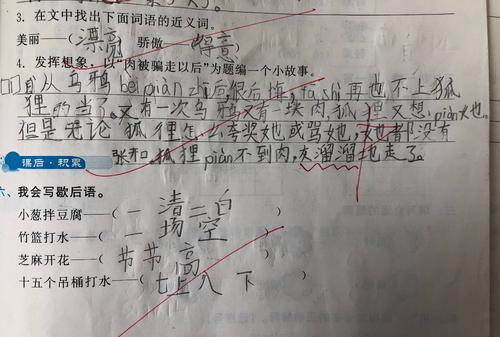 3. 在文中找出下面词语的近义词。
美丽——(漂亮) 骄傲——(得意)
4. 发挥想象,以“肉被骗走以后”为题编一个小故事。
自从乌鸦bei piàn zhī后,很后悔,fā shì再也不上狐
狸的当了。又有一次乌鸦又有一块肉,狐狸又想piàn她。
但是无论狐狸怎么夸奖她,或骂她,她也都没有
张口。狐狸piàn不到肉,灰溜溜地走了。
课后·积累
六、我会写歇后语。
小葱拌豆腐——(一清二白)
竹篮打水——(一场空)
芝麻开花——(节节高)
十五个吊桶打水——(七上八下)